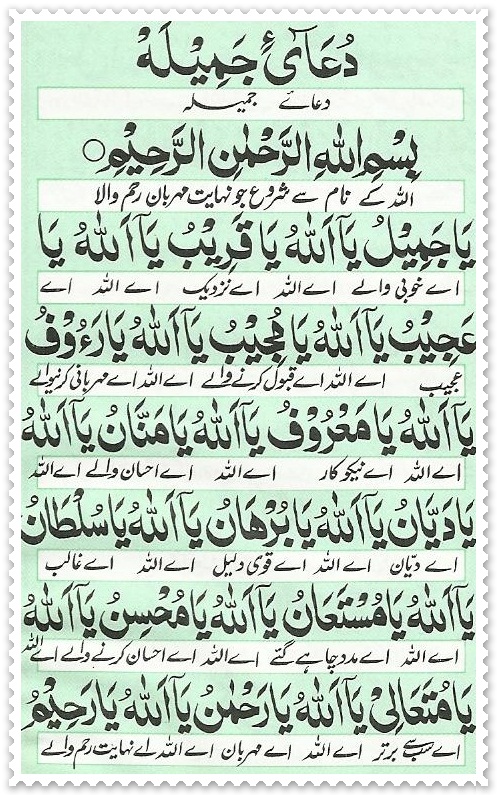 دُعَائے جَمِيْلَهْ
دعائے جمیلہ
بِسْمِ اللهِ الرَّحْمٰنِ الرَّحِيْمِ○
اللہ کے نام سے شروع جو نہایت مہربان رحم والا
يَا جَمِيْلُ يَآ اَللهُ يَا قَرِيْبُ يَآ اَللهُ يَا
اے خوبی والے اے اللہ اے نزدیک اے اللہ اے
عَجِيْبُ يَآ اَللهُ يَا مُجِيْبُ يَآ اَللهُ يَا رَءُوْفُ
عجیب اے اللہ اے قبول کرنے والے اے اللہ اے مہربانی کرنیوالے
يَآ اَللهُ يَا مَعْرُوْفُ يَآ اَللهُ يَا مَنَّانُ يَآ اَللهُ
اے اللہ اے نیکو کار اے اللہ اے احسان والے اے اللہ
يَا دَيَّانُ يَآ اَللهُ يَا بُرْهَانُ يَآ اَللهُ يَا سُلْطَانُ
اے دیّان اے اللہ اے قوی دلیل اے اللہ اے غالب
يَآ اَللهُ يَا مُسْتَعَانُ يَآ اَللهُ يَا مُحْسِنُ يَآ اَللهُ
اے اللہ اے مدد چاہے گئے اے اللہ اے احسان کرنے والے اے اللہ
يَا مُتَعَالِىْ يَآ اَللهُ يَا رَحْمٰنُ يَآ اَللهُ يَا رَحِيْمُ
اے سب سے برتر اے اللہ اے مہربان اے اللہ اے نہایت رحم والے